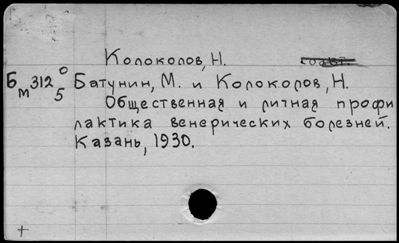 Колоколов, Н.
Бм312 0/5 Батунин, М. и Колоколов, Н.
Общественная и личная профи
лактика венерических болезней.
Казань, 1930.
+